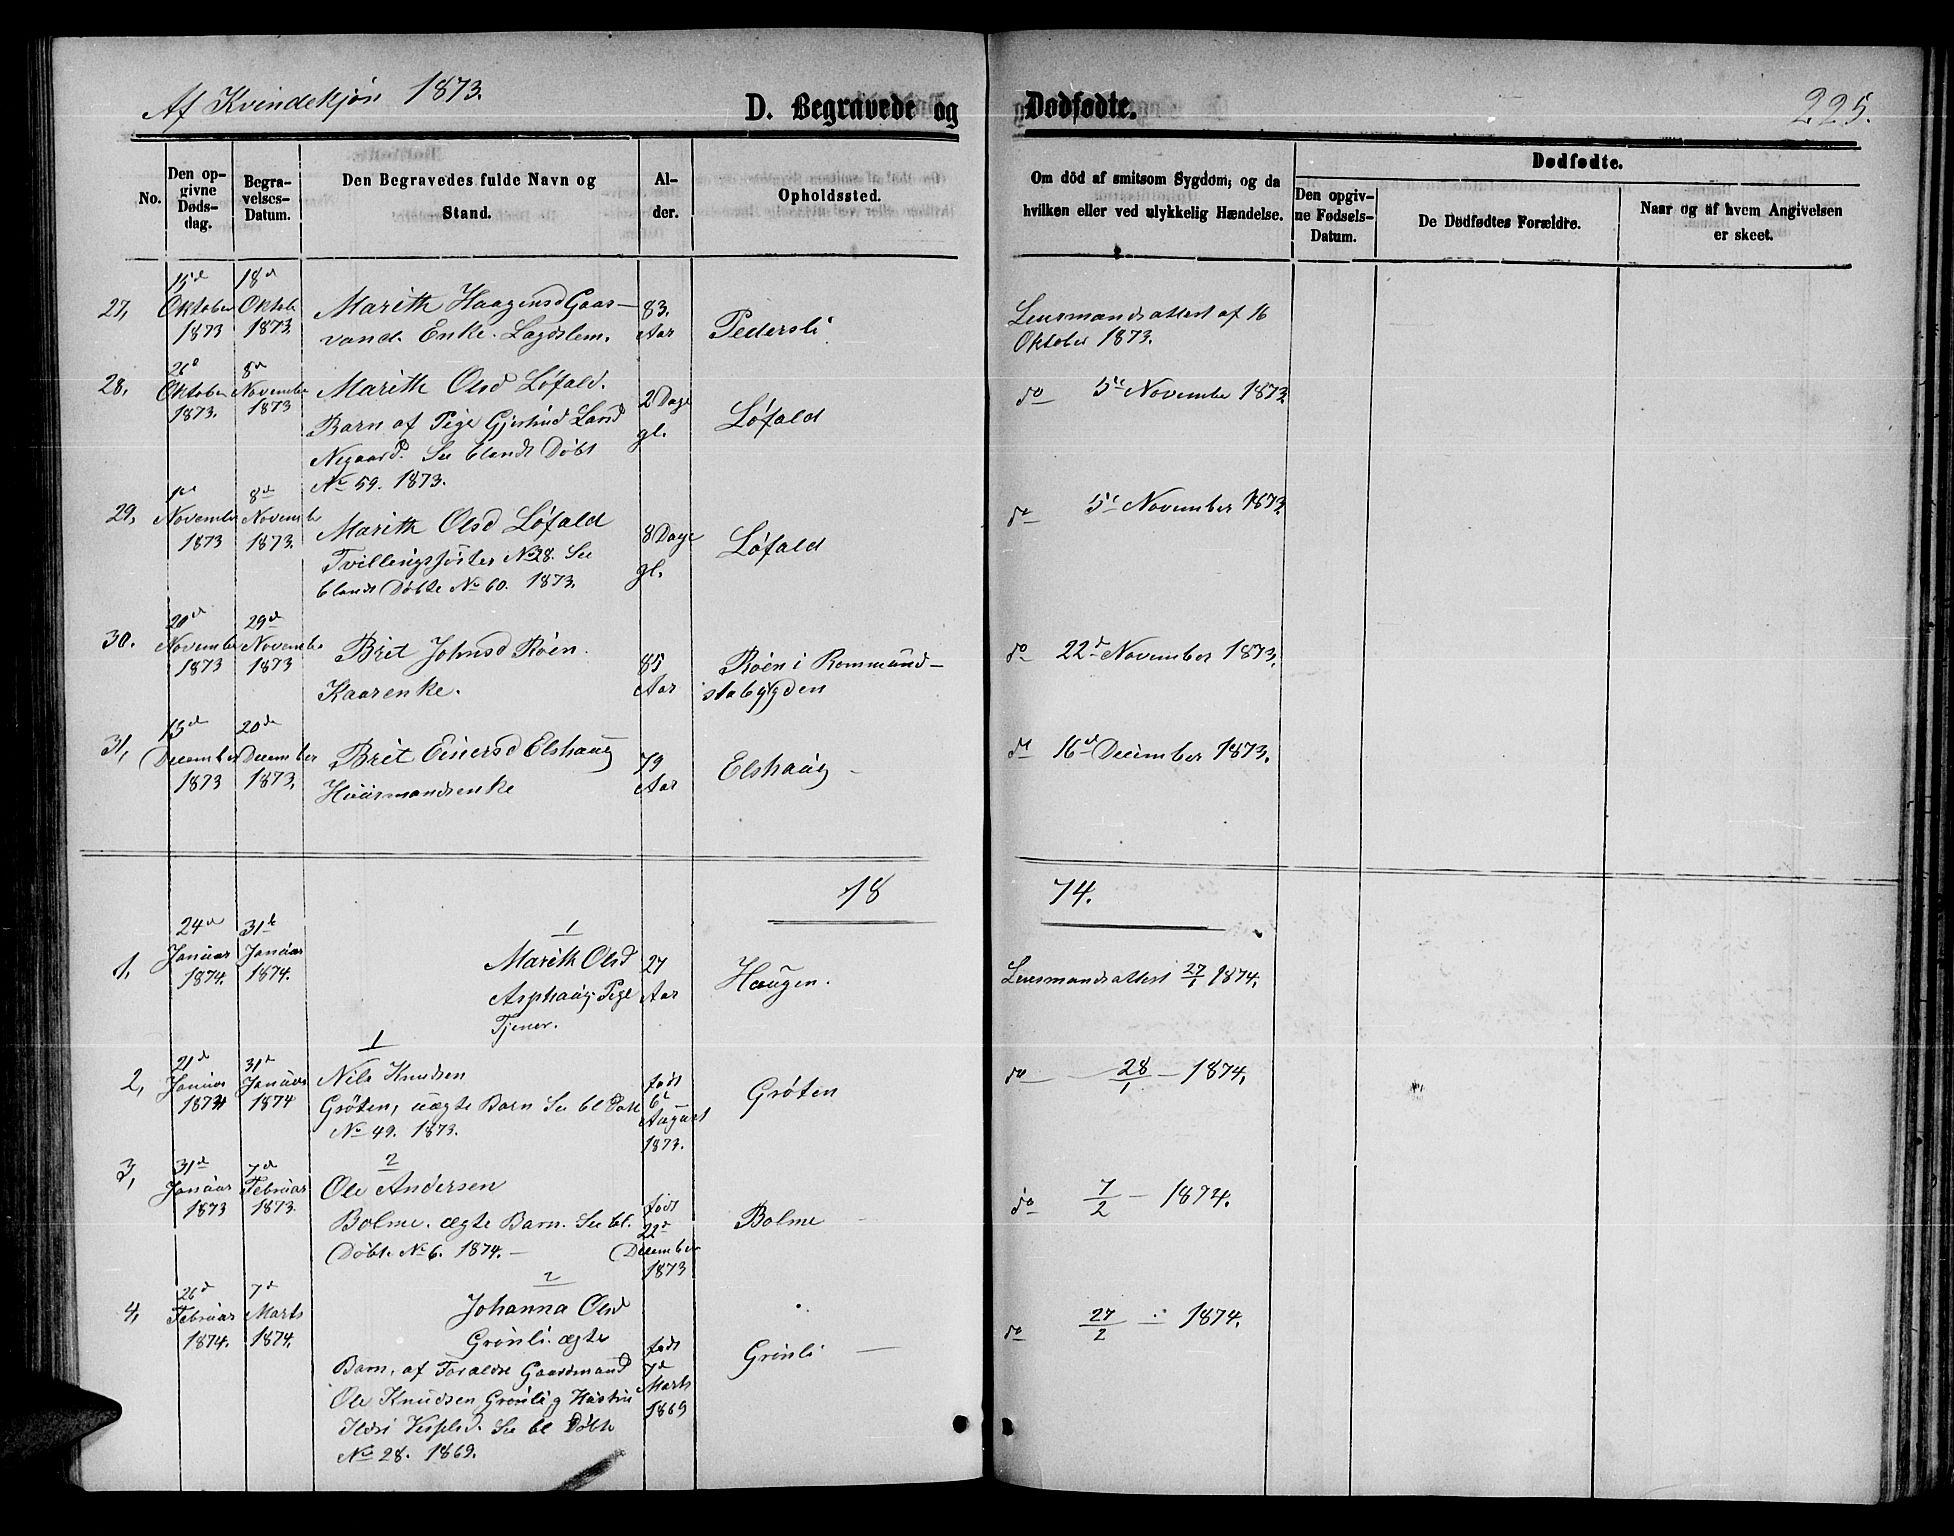 Af Kvindekjøn 1873.
D. Begravede og Dødfødte.
225.
No.
Den op-
givne
Døds-
dag.
Begra-
velses-
Datum.
Den Begravedes fulde Navn og
Stand.
Al-
der.
Opholdssted.
Om död af smitsom Sygdom, og da
hvilken eller ved ulykkelig Hændelse.
Dødfødte.
Den opgiv-
ne Fødsels-
Datum.
De Dødfødtes Forældre.
Naar og af hvem Angivelsen
er skeet.
27,
15d
Oktober
1873
18d
Oktobe
1873.
Marith Haagensd Gaas-
vand. Enke. Lagdslem.
83.
Aar
Pedersli
Lensmandsattest af 16
Oktober 1873.
28,
Oktober
1873.
8d
November
1873
Marith Olsd Løfald.
Barn af Pige Gjertrud Larsd
Negaard. See blandt Døbt
No 59. 1873.
2 Dage
gl.
Løfald
do 5t November 1873
29,
November
1873
8d
Novembe
1873.
Marith Olsd Løfald
Tvillingsøster No 28. See
blandt Døbte No 60. 1873.
8 Dage
gl.
Løfald
do 5t November 1873
30.
20d
November
1873
29d
November
1873
Brit Johnsd Røen.
Kaarenke.
85
Aar
Røen i Rommund-
stabygden
do 22d November 1873.
31,
15d
December
1873
20de
December
1873.
Brit Einersd Elshaug
Huusmandsenke
79
Aar
Elshaug -
do 16d December 1873.
18 74.
1,
24d
Januar
1874.
31te
Januar
1874.
1
Marith Olsd
Asphaug Pige
Tjener.
27
Aar
Haugen.
Lensmandsattest 27/1 1874.
2,
21d
Januar
31d
Januar
1874
1
Nils Knudsen
Grøten, uægte Barn See bl Døbt
No 49. 1873.
født
6t
August
1873.
Grøten
do 28/1 - 1874.
3,
31d
Januar
1873
7d
Februar
1873.
2
Ole Andersen
Bolme. ægte Barn. See bl.
Døbte No 6. 1874. -
født
22d
December
1873
Bolme -
do 7/2 - 1874.
4,
26d
Februar
1874.
7d
Marts
1874.
2
Johanna Olsd
Grønli. ægte
Barn, af Foraldre Gaardmand
Ole Knudsen Grønli og Hustru
Ildri See bl Døbte
No 28. 1869.
født
7d
Marts
1869
Grønli -
do 27/2 - 1874.